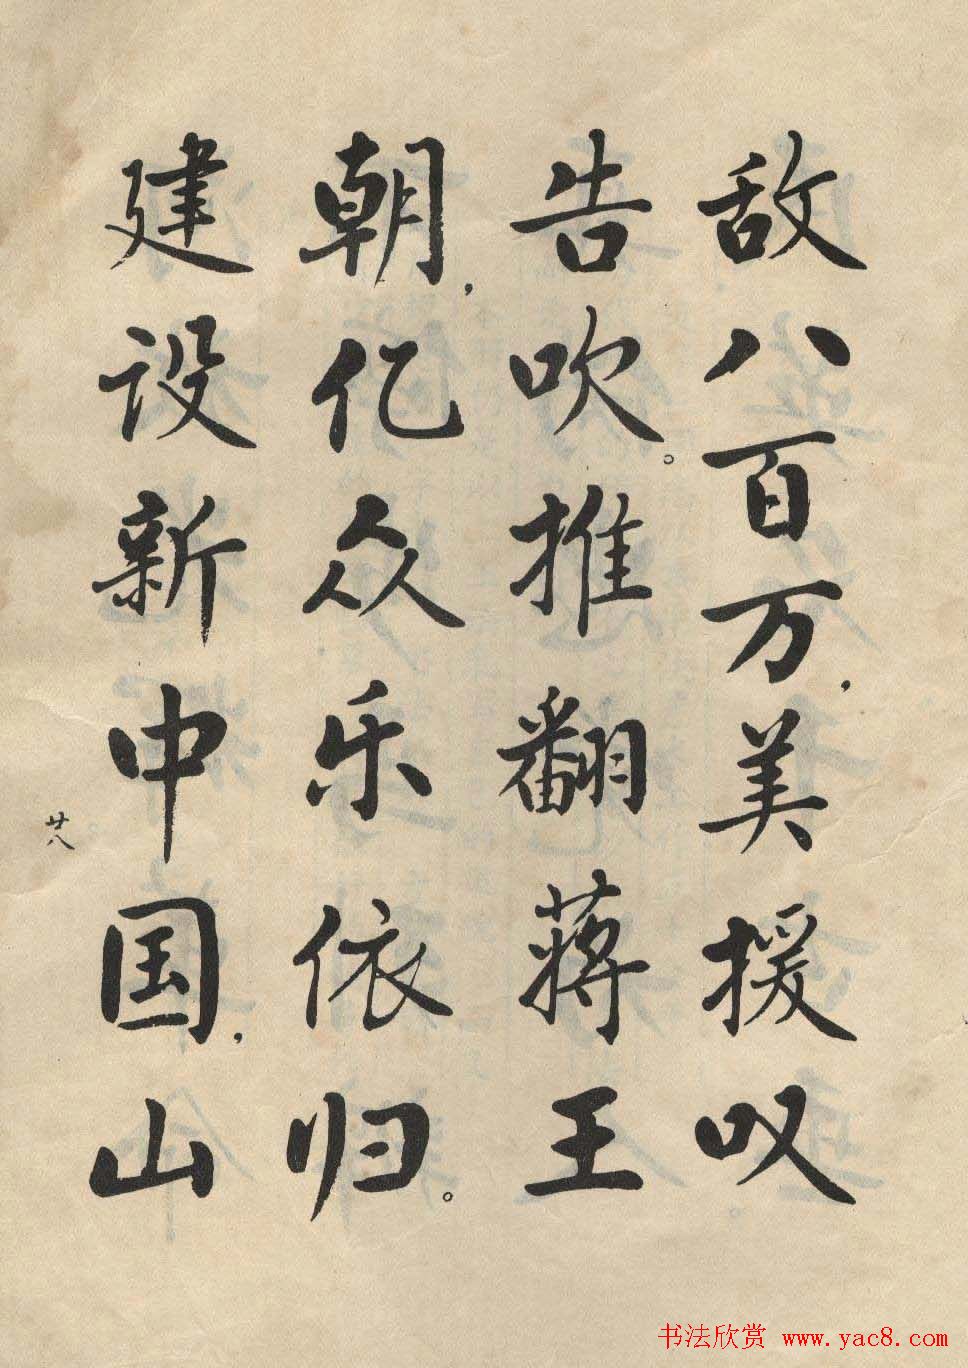 敌八百万,美援叹
告吹。推翻蒋王
朝,亿众乐依归。
建设新中国,山
廿八
书法欣赏 www.yac8.com